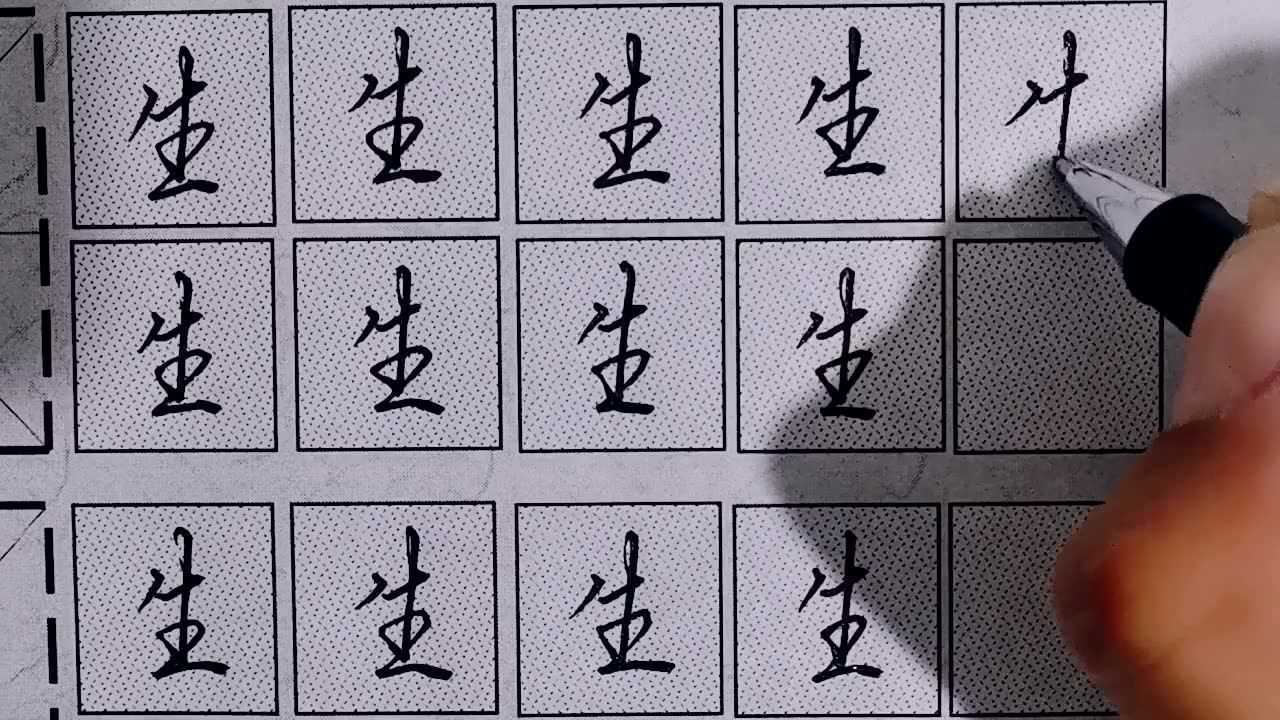 生 生 生 生
生 生 生 生
生 生 生 生